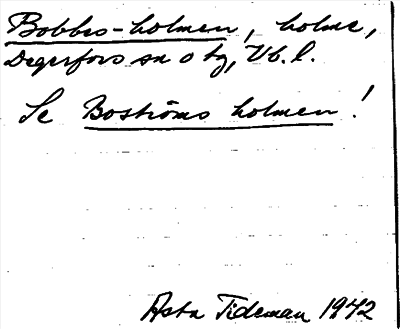 Bobbes-holmen, holme,
Degerfors sn o tg, Vb. l.
Se Boströms holmen!
Asta Tideman 1972